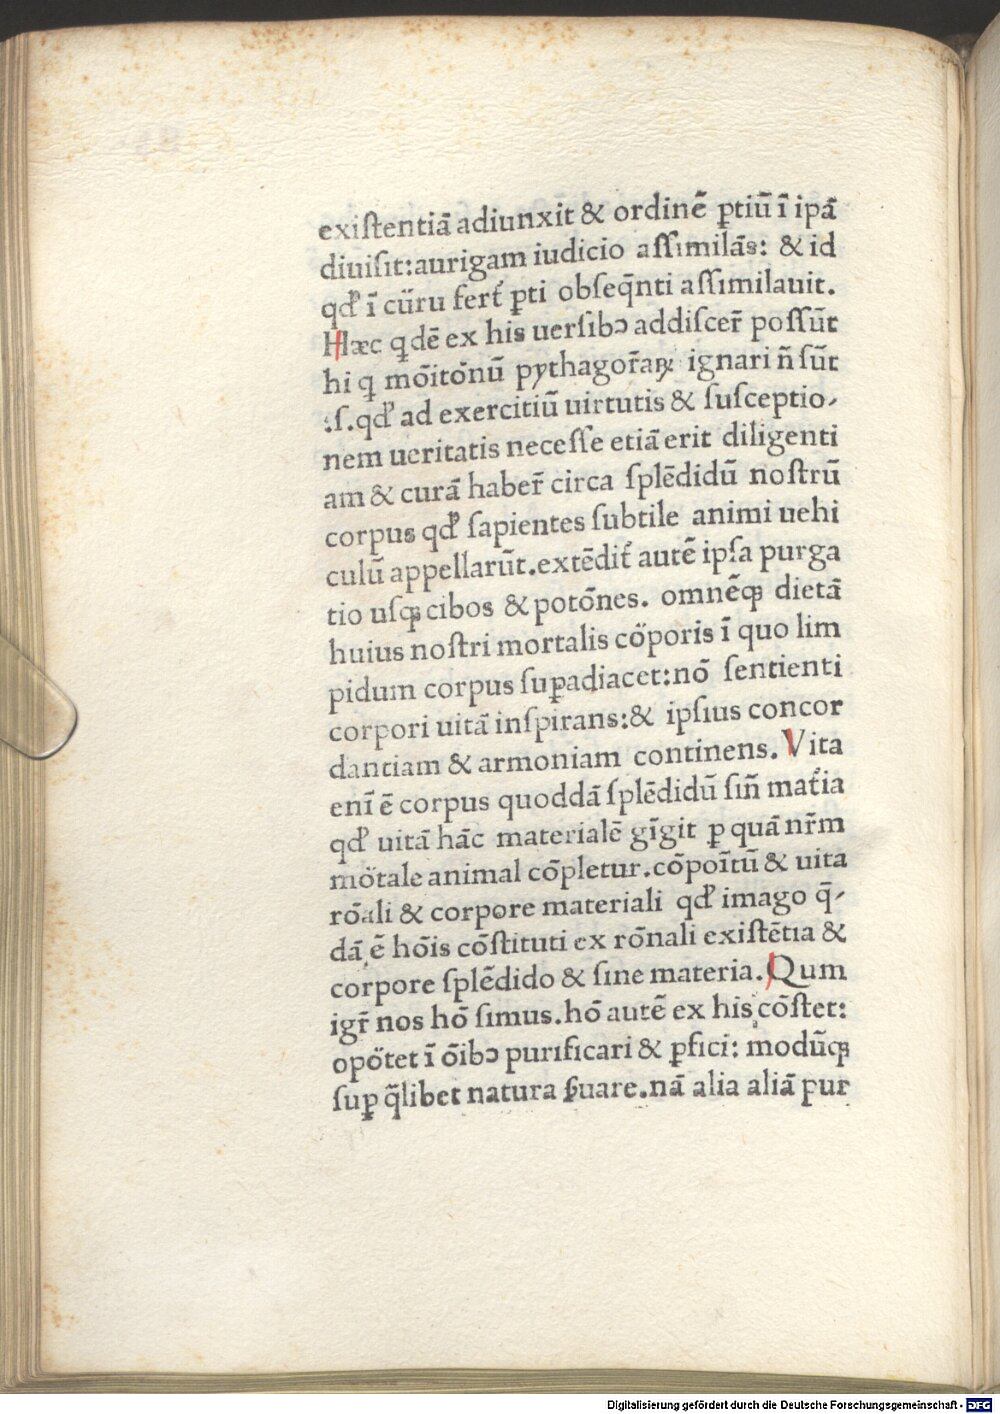 existentiā adiunxit & ordinē ꝑtiū ī ipā
diuisit:aurigam iudicio assimilās: & id
qđ ī curru fert̄ ꝑti obseq̄nti assimilauit.
Hæc qdē ex his uersibꝰ addiscer̄ possūt
hi q mōitonū pythagor̄aꝝ ignari n̄ sūt
.s.qđ ad exercitiū uirtutis & susceptio-
nem ueritatis necesse etiā erit diligenti
am & curā haber̄ circa splēdidū nostrū
corpus qđ sapientes subtile animi uehi
culū appellarūt.extēdit̄ autē ipsa purga
tio usqꝫ cibos & potōnes. omnēqꝫ dietā
huius nostri mortalis corporis ī quo lim
pidum corpus suꝑadiacet:nō sentienti
corpori uitā inspirans:& ipsius concor
dantiam & armoniam continens. Vita
enī ē corpus quoddā splēdidū sin̄ mat̄ia
qđ uitā hāc materialē gīgit ꝑ quā nr̄m
mortale animal cōpletur.cōpoītū & uita
rōali & corpore materiali qđ imago q̄-
dā ē hōis cōstituti ex rōnali existētia &
corpore splēdido & sine materia. Qum
igr̄ nos hō simus.hō autē ex his cōstet:
oportet ī ōibꝰ purificari & ꝑfici: modūqꝫ
suꝑ q̄libet natura ẜuare.nā alia aliā pur
Digitalisierung gefördert durch die Deutsche Forschungsgemeinschaft - DFG